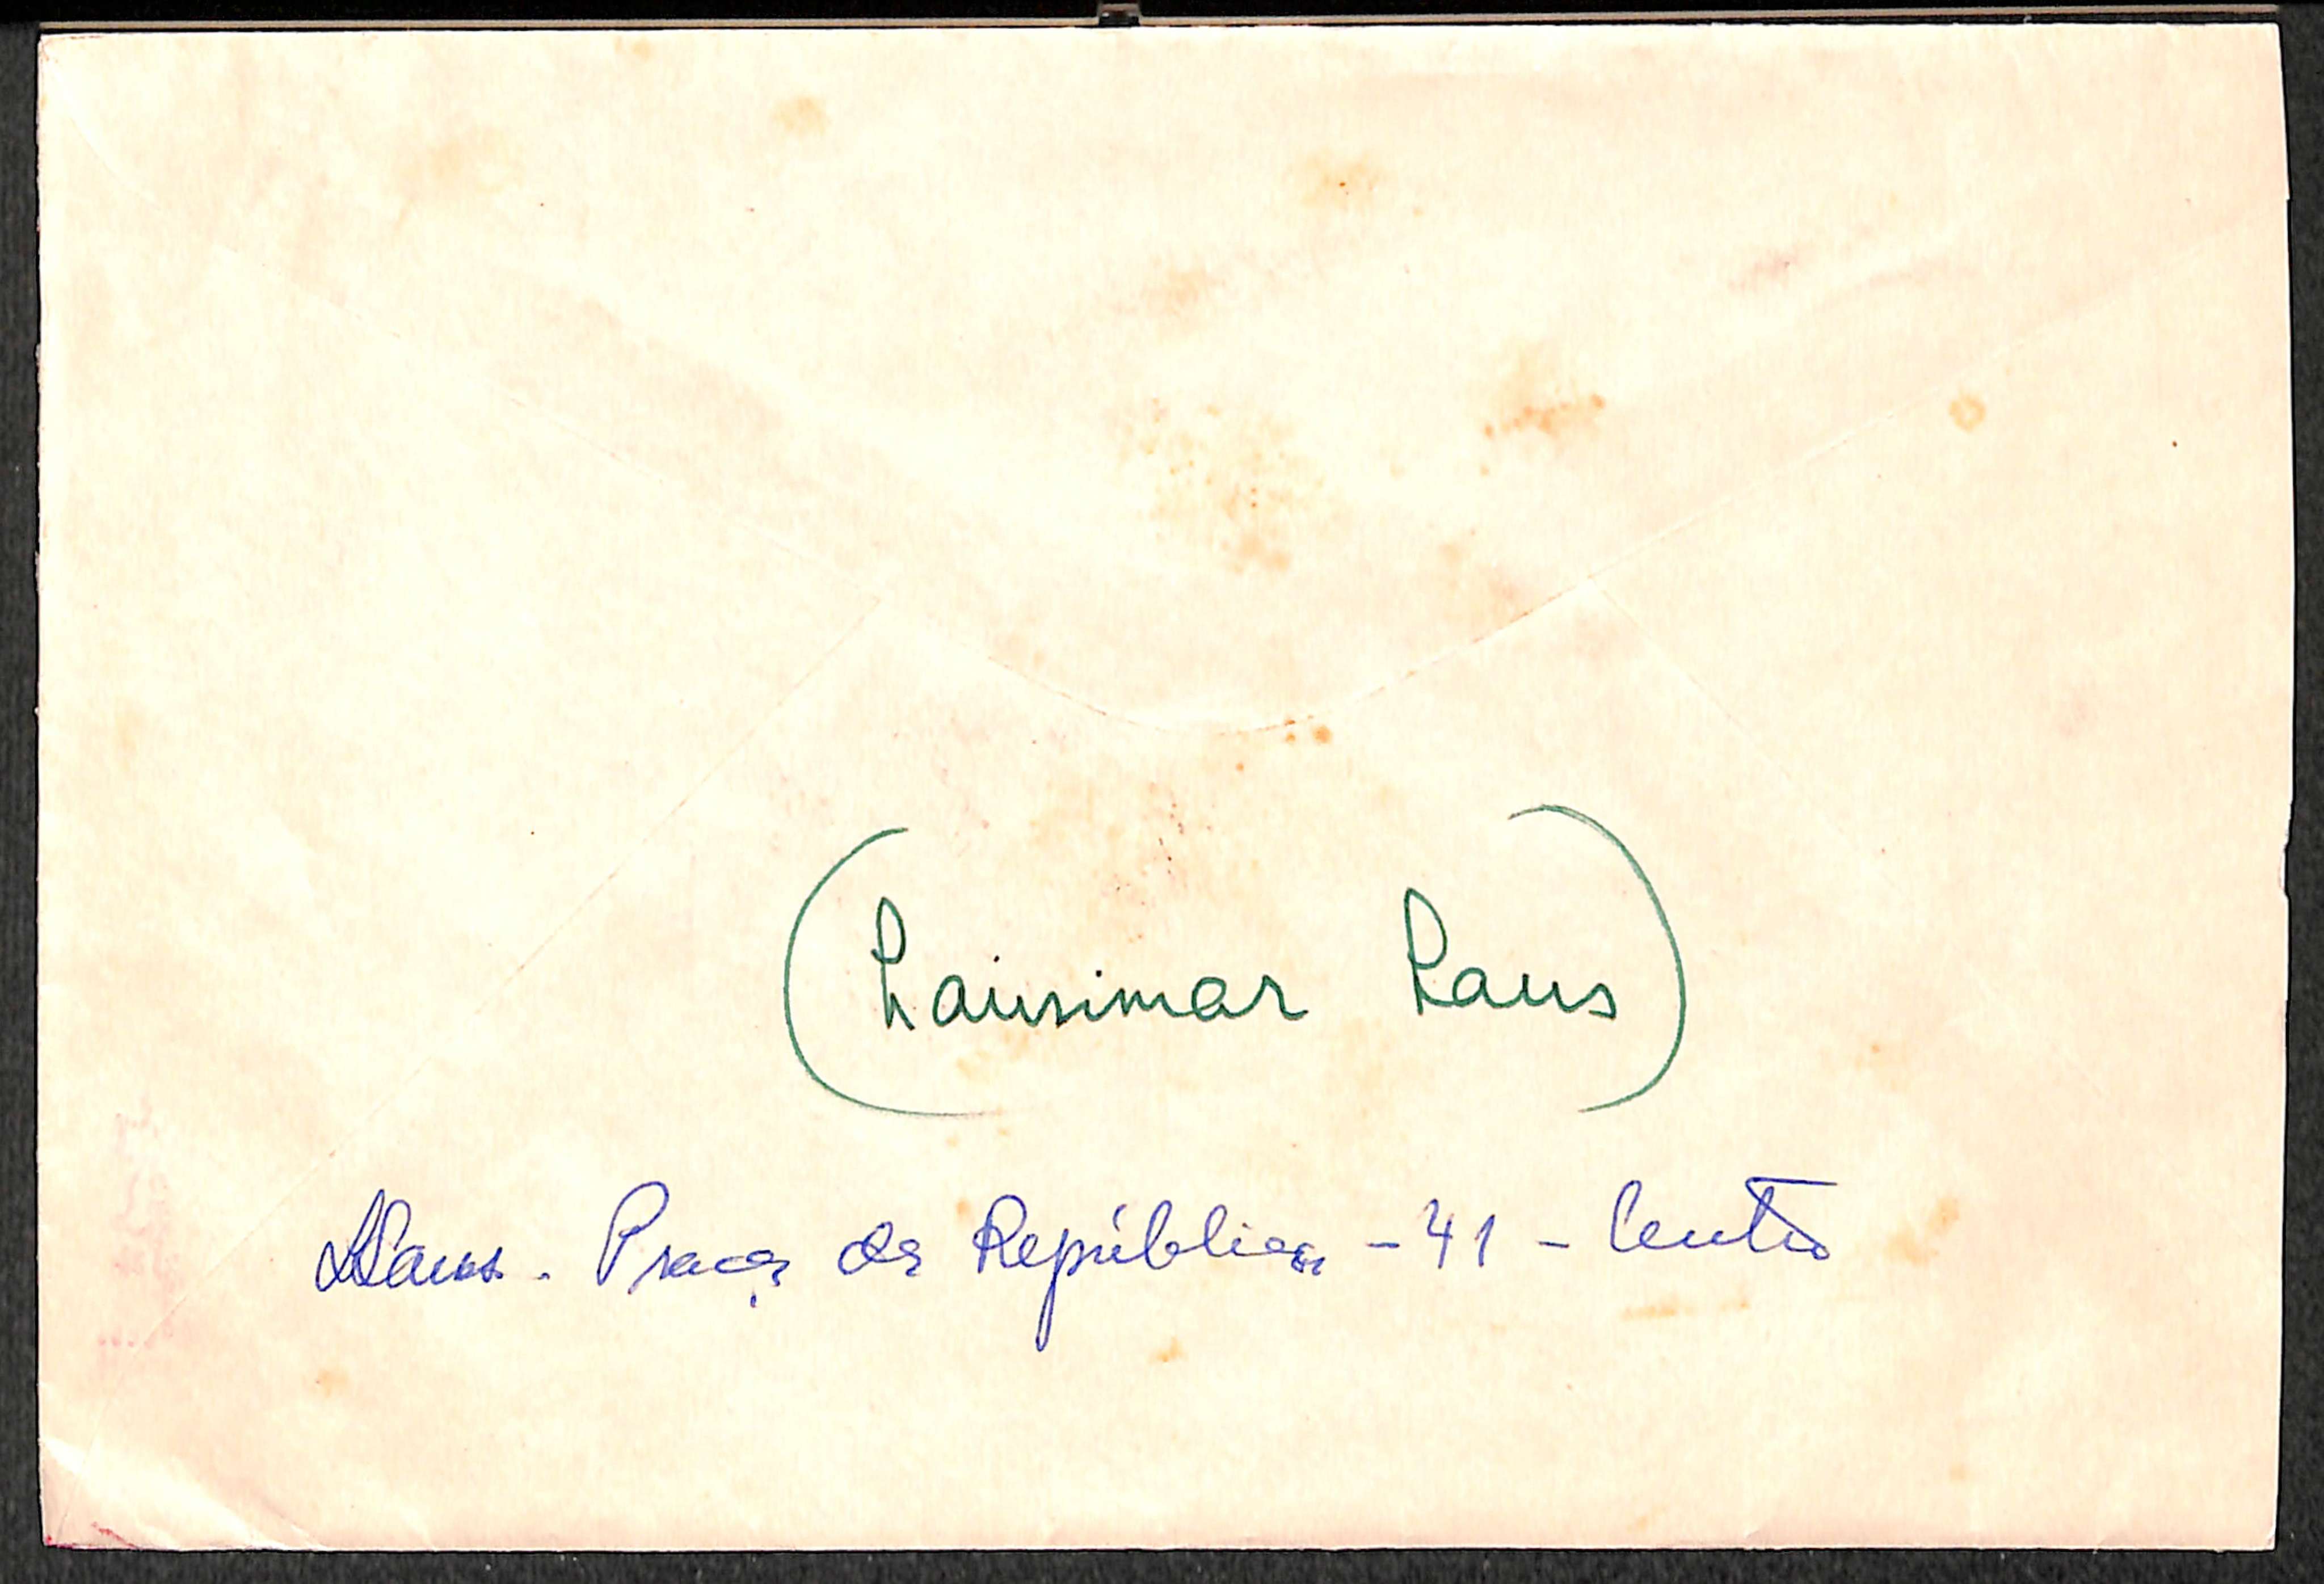 (Lausimar Laus)
LLaus. Praça da República - 41 - Centro